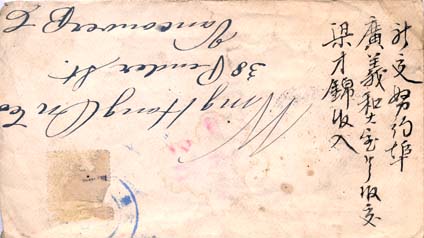 祈交努約埠
廣義和大宝号收交
梁才錦收入
Wing Hong On Co
38 Pender St.
Vancouver B C